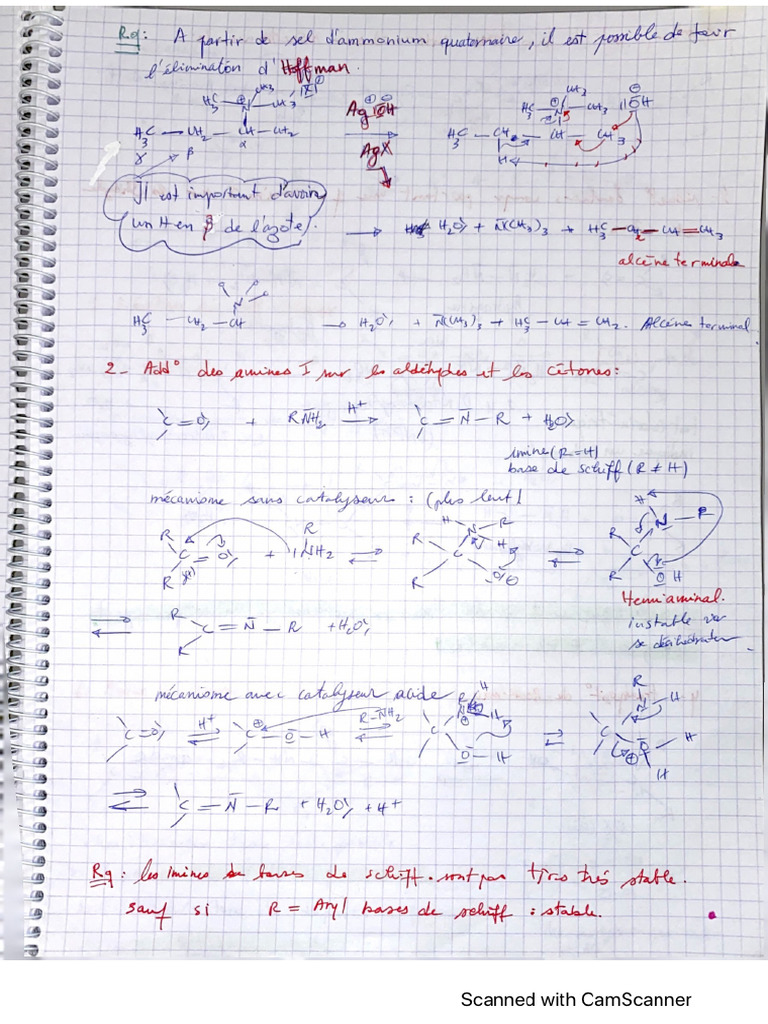 Rq: A partir de sel d'ammonium quaternaire, il est possible de
l'élimination d'Hoffman.
H3C — CH2 — CH — CH2
γ β α
Ag OH
AgX
Il est important d'avoir
un H en β de l'azote.
→ H2O + N(CH3)3 + H3C — CH2 — CH = CH3
alcène terminal
H3C — CH2 — CH → H2O + N(CH3)3 + H3C — CH = CH2. Alcène terminal
2 - Add° des amines I sur les aldéhydes et les cétones:
C = O + RNH2 H+ → C = N — R + H2O
imine (R = H)
base de schiff (R ≠ H)
mécanisme sans catalyseur : (plus lent)
R C = O + R NH2 ⇌
Hemiaminal.
instable va
se déshidrater
⇌ R C = N — R + H2O
mécanisme avec catalyseur acide
C = O H+ ⇌ C — O — H R-NH2 ⇌
⇌ C = N — R + H2O + H+
Rq : les imines bases de schiff. sont pas très stable.
sauf si R = Aryl bases de schiff : stable.
Scanned with CamScanner